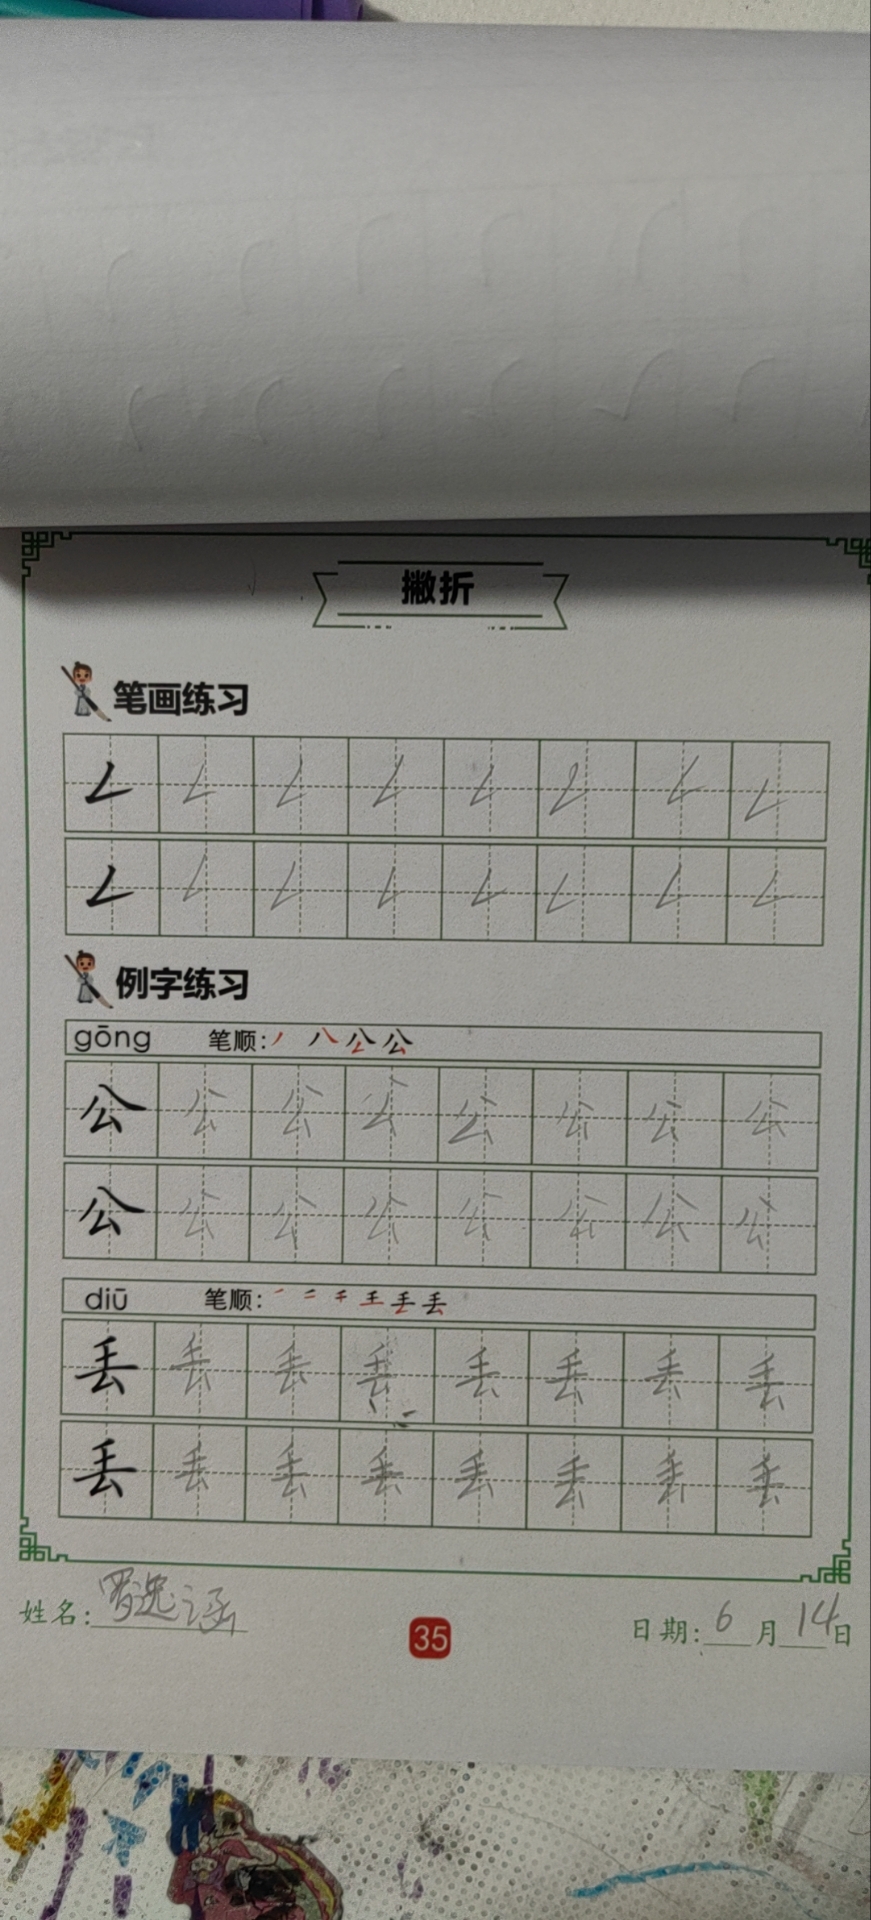 撇折
笔画练习
𠃋 𠃋 𠃋 𠃋 𠃋 𠃋 𠃋 𠃋
𠃋 𠃋 𠃋 𠃋 𠃋 𠃋 𠃋 𠃋
例字练习
gōng 笔顺:
公 公 公 公 公 公 公 公
公 公 公 公 公 公 公 公
diū 笔顺:
丢 丢 丢 丢 丢 丢 丢 丢
丢 丢 丢 丢 丢 丢 丢 丢
姓名:罗逸涵
35
日期:6月14日